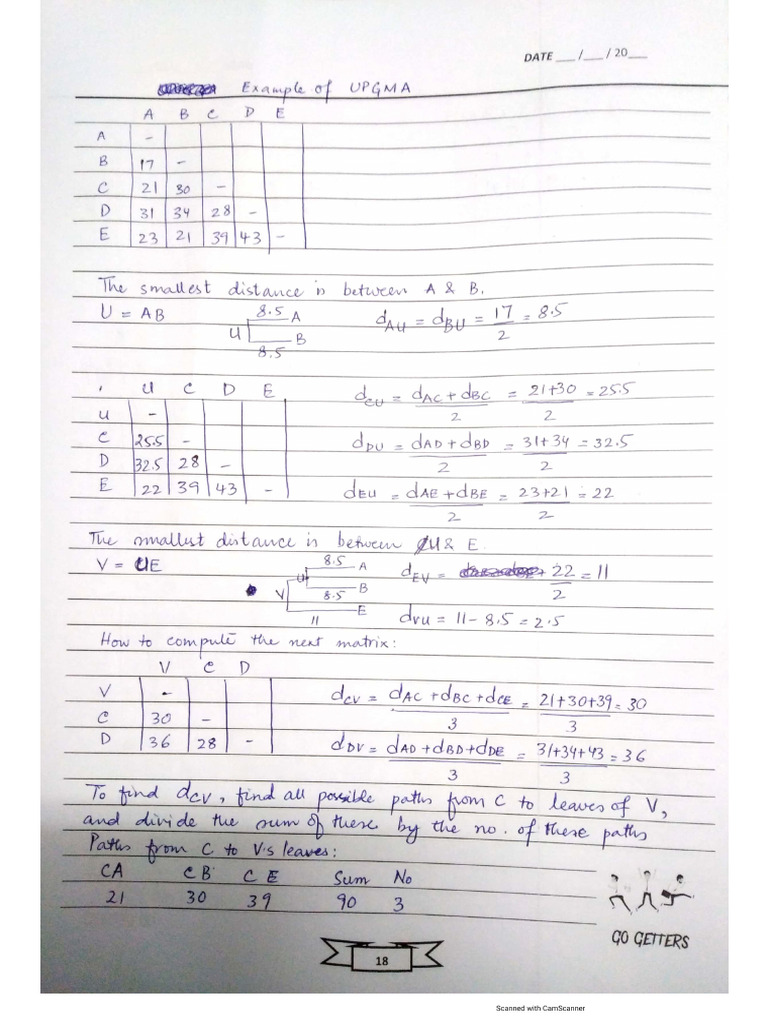 DATE ___ /___ / 20___
Example of UPGMA
A B C D E
A -
B 17 -
C 21 30 -
D 31 34 28 -
E 23 21 39 43 -
The smallest distance is between A & B.
U = AB
8.5 A
U
B
8.5
dAU = dBU = 17/2 = 8.5
U C D E
U -
C 25.5 -
D 32.5 28 -
E 22 39 43 -
dCU = dAC + dBC / 2 = 21+30 / 2 = 25.5
dDU = dAD + dBD / 2 = 31+34 / 2 = 32.5
dEU = dAE + dBE / 2 = 23+21 / 2 = 22
The smallest distance is between U & E.
V = UE
8.5 A
U
B
8.5
V
E
11
dEV = 22/2 = 11
dVU = 11 - 8.5 = 2.5
How to compute the next matrix:
V C D
V -
C 30 -
D 36 28 -
dCV = dAC + dBC + dCE / 3 = 21+30+39 / 3 = 30
dDV = dAD + dBD + dDE / 3 = 31+34+43 / 3 = 36
To find dCV, find all possible paths from C to leaves of V,
and divide the sum of these by the no. of these paths
Paths from C to V's leaves:
CA CB CE Sum No
21 30 39 90 3
GO GETTERS
18
Scanned with CamScanner